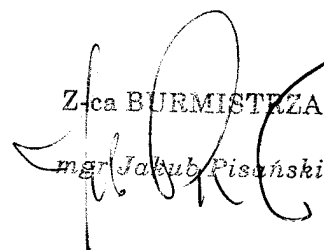 Z-ca BURMISTRZA
mgr Jakub Pisański